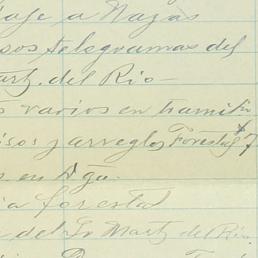 iaje a Nazas
sos telegramas del
artz. del Rio —
s varios en tramite
isos y arreglos Forestal
s en Dgo.
ia forestal
del Sr Martz del Rio